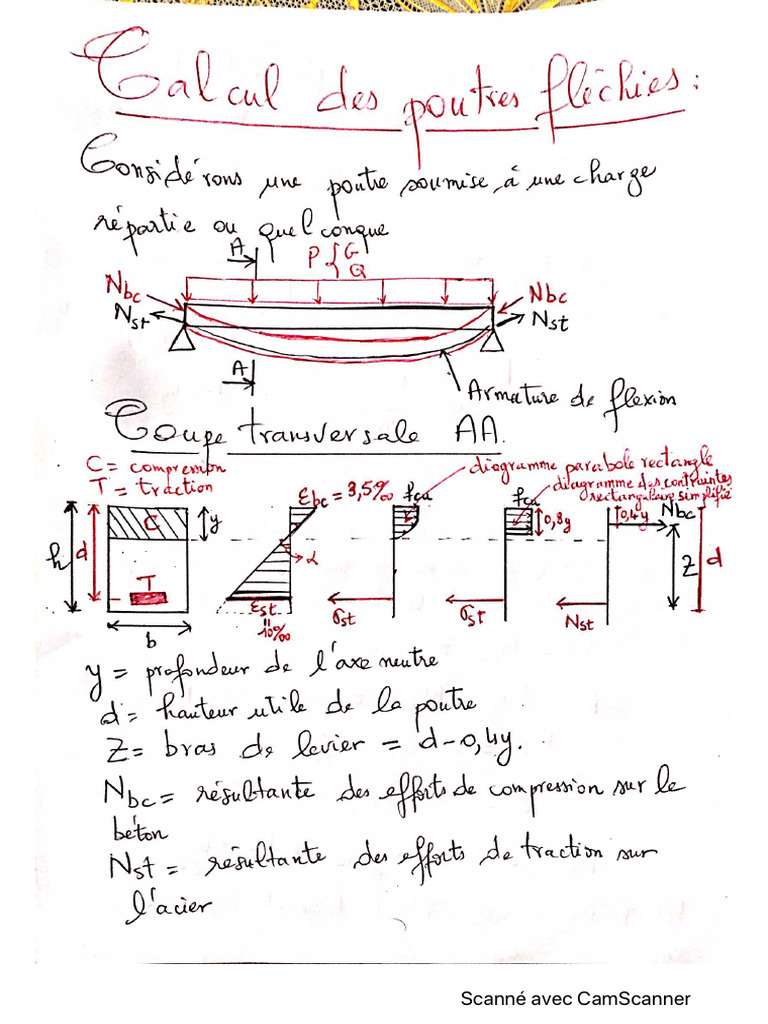 Calcul des poutres fléchies :
Considérons une poutre soumise à une charge
répartie ou quelconque
A
P { G
Q
Nbc
Nbc
Nst
Nst
A
Armature de flexion
Coupe transversale AA.
C = compression
T = traction
diagramme parabole rectangle
diagramme des contraintes
rectangulaire simplifié
εbc = 3,5‰
fcu
fcu
0,8y
0,4y
Nbc
h
d
C
y
α
T
Z
d
εst
=
10‰
σst
σst
Nst
b
y = profondeur de l'axe neutre
d = hauteur utile de la poutre
Z = bras de levier = d-0,4y.
Nbc = résultante des efforts de compression sur le
béton
Nst = résultante des efforts de traction sur
l'acier
Scanné avec CamScanner